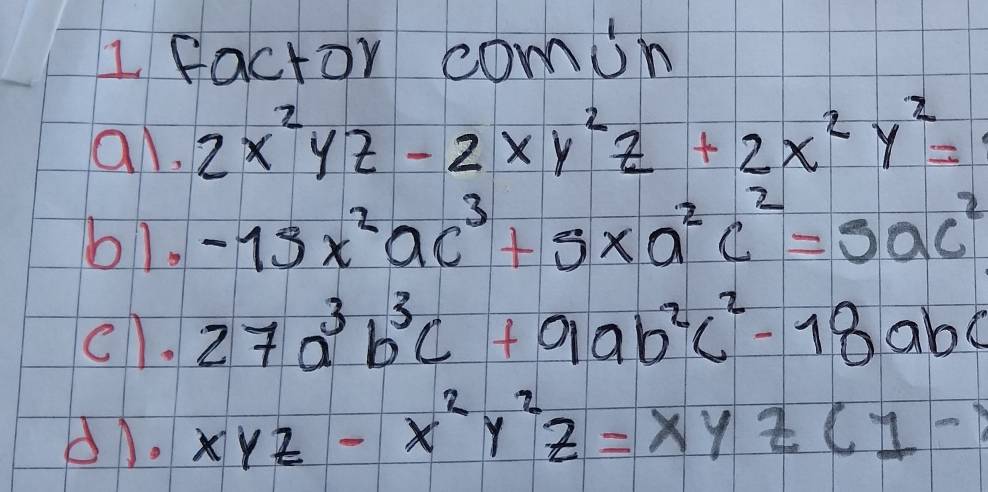 1 Factor común
a). 2x²yz - 2xy²z + 2x²y² =
b). -15x²ac³ + 5xa²c² = 5ac²
c). 27a³b³c + 9ab²c² - 18abc
d). xyz - x²y²z = xyz(1-